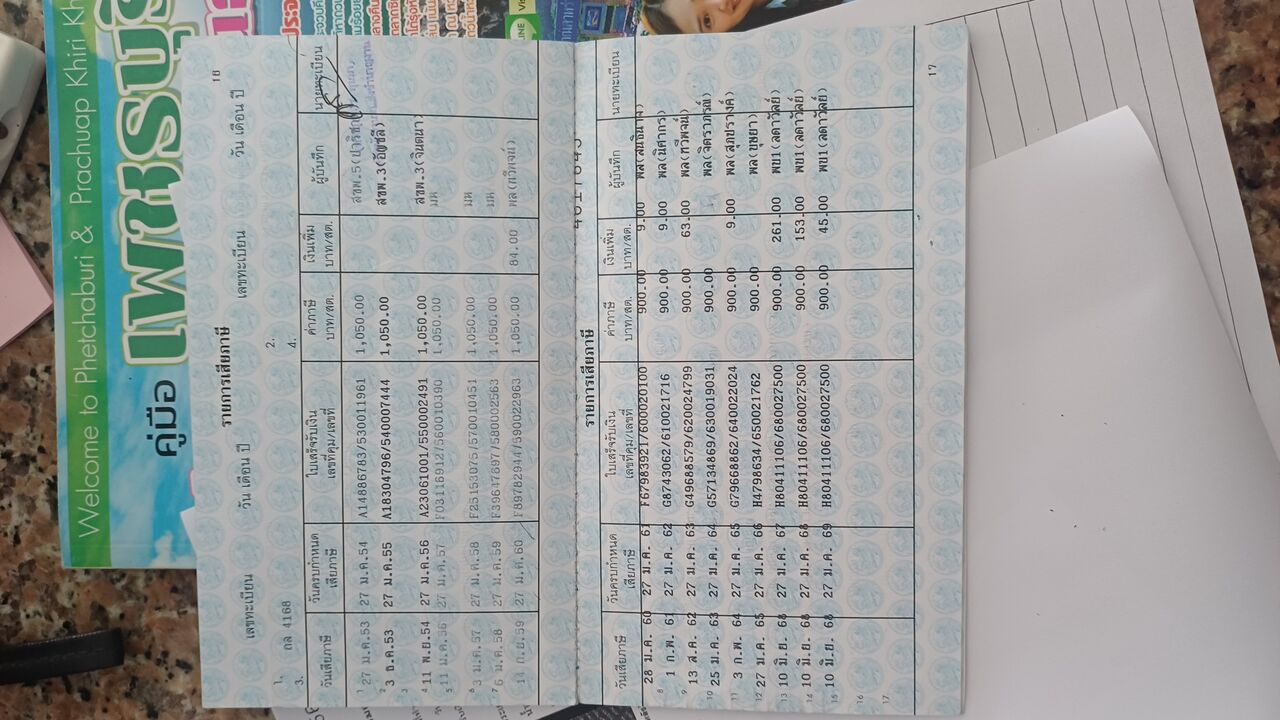 Welcome to Phetchaburi & Prachuap Khiri Kh
คู่มือ
เพชรบุรี
LINE
18
เลขทะเบียน วัน เดือน ปี เลขทะเบียน วัน เดือน ปี
1. 2.
3. ถล 4168 4.
รายการเสียภาษี
วันเสียภาษี วันครบกำหนดเสียภาษี ใบเสร็จรับเงิน เลขที่คุม/เลขที่ ค่าภาษี บาท/สต. เงินเพิ่ม บาท/สต. ผู้บันทึก นายทะเบียน
1 27 ม.ค.53 27 ม.ค.54 A14886783/530011961 1,050.00
2 3 ธ.ค.53 27 ม.ค.55 A18304796/540007444 1,050.00 สขพ.3(อัญชลี)
3
4 11 พ.ย.54 27 ม.ค.56 A23061001/550002491 1,050.00 สขพ.3(จินตนา)
5 11 ม.ค.56 27 ม.ค.57 F03116912/560010390 1,050.00 มห
6 3 ม.ค.57 27 ม.ค.58 F25153075/570010451 1,050.00 มห
7 6 ม.ค.58 27 ม.ค.59 F39647897/580002563 1,050.00 มห
14 ก.ย.59 27 ม.ค.60 F89782944/590022963 1,050.00 84.00 พล(ทวีพจน์)
4617645
รายการเสียภาษี
17
วันเสียภาษี วันครบกำหนดเสียภาษี ใบเสร็จรับเงิน เลขที่คุม/เลขที่ ค่าภาษี บาท/สต. เงินเพิ่ม บาท/สต. ผู้บันทึก นายทะเบียน
28 ม.ค. 60 27 ม.ค. 61 F67983921/600020100 900.00 9.00
8 1 ก.พ. 61 27 ม.ค. 62 G8743062/610021716 900.00 9.00 พล(นิศากร)
9 13 ส.ค. 62 27 ม.ค. 63 G49688579/620024799 900.00 63.00 พล(ทวีพจน์)
10 25 ม.ค. 63 27 ม.ค. 64 G57134869/630019031 900.00 พล(จิตราภรณ์)
11 3 ก.พ. 64 27 ม.ค. 65 G79668862/640022024 900.00 9.00 พล(สุกปรางค์)
12 27 ม.ค. 65 27 ม.ค. 66 H4798634/650021762 900.00 พล(บุษยา)
13 10 มิ.ย. 68 27 ม.ค. 67 H80411106/680027500 900.00 261.00 พบ1(ลดาวัลย์)
14 10 มิ.ย. 68 27 ม.ค. 68 H80411106/680027500 900.00 153.00 พบ1(ลดาวัลย์)
15 10 มิ.ย. 68 27 ม.ค. 69 H80411106/680027500 900.00 45.00 พบ1(ลดาวัลย์)
16
17